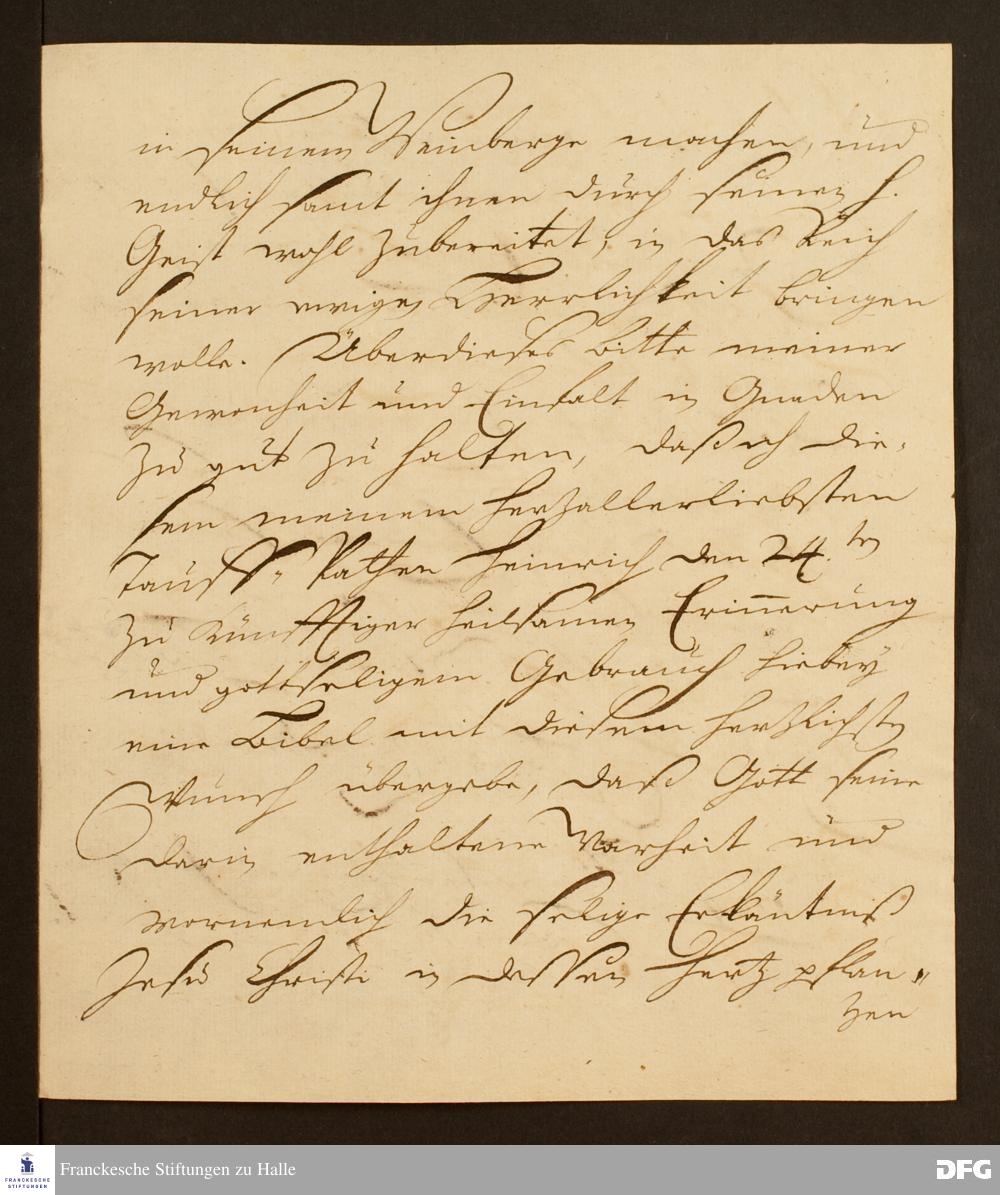 in seinem Weinberge machen, und
endlich samt ihnen durch seinen h.
Geist wohl zubereitet, in das Reich
seiner ewigen Herrlichkeit bringen
wolle. Überdieses bitte meiner
Gewonheit und Einfalt in Gnaden
zu gut zu halten, daß ich die-
sem meinem herzallerliebsten
Tauff-Pathen Heinrich den 24.ten
zu künfftiger heilsamen Erinnerung
und gottseligem Gebrauch hiebey
eine Bibel mit diesem herzlichsten
Wunsch übergebe, daß Gott seine
darin enthaltene Warheit und
vornemlich die selige Erkäntniß
Jesu Christi in dessen Hertz pflan-
tzen
Franckesche Stiftungen zu Halle
FRANCKESCHE
STIFTUNGEN
DFG